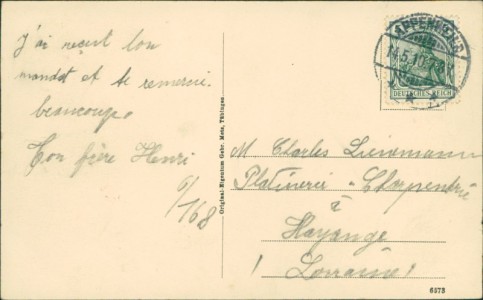 J'ai reçut ton
mandat et te remercie
beaucoup
Ton frère Henri
6/168
Original-Eigentum Gebr. Metz, Tübingen
14.5.10
DEUTSCHES REICH
M Charles
Platinerie
à
Hayange
! Lorraine!
6373